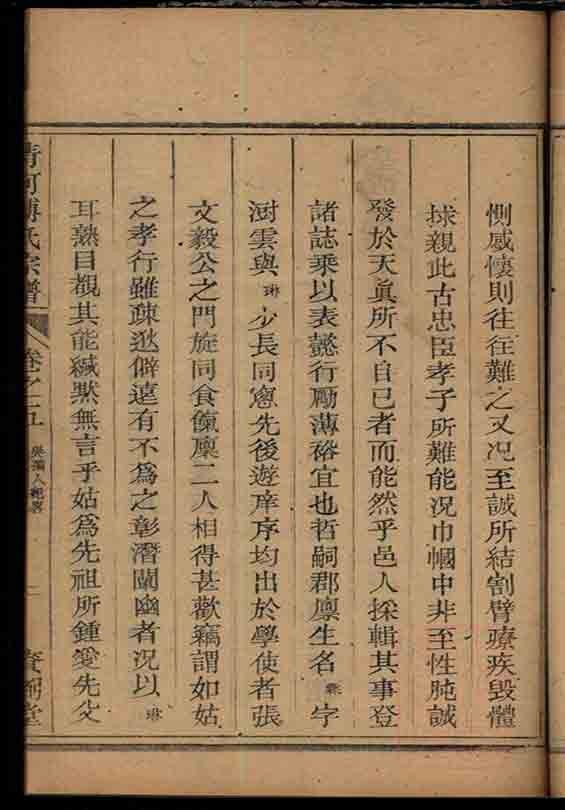 惻感悽則往往難之又况至誠所結割臂療疾毀體
捄親此古忠臣孝子所難能况巾幗中非至性肫誠
發於天眞所不自已者而能然乎邑人採輯其事登
諸誌乘以表懿行勵薄裕宜也哲嗣郡廪生名 字
澍雲與琳少長同窻先後遊庠序均出於學使者張
文毅公之門旋同食餼廪二人相得甚歡竊謂如姑
之孝行雖疎逖僻遠有不爲之彰潛闡幽者况以琳
耳熟目覩其能緘默無言乎姑爲先祖所鍾愛先父
清河傅氏宗譜 卷之五